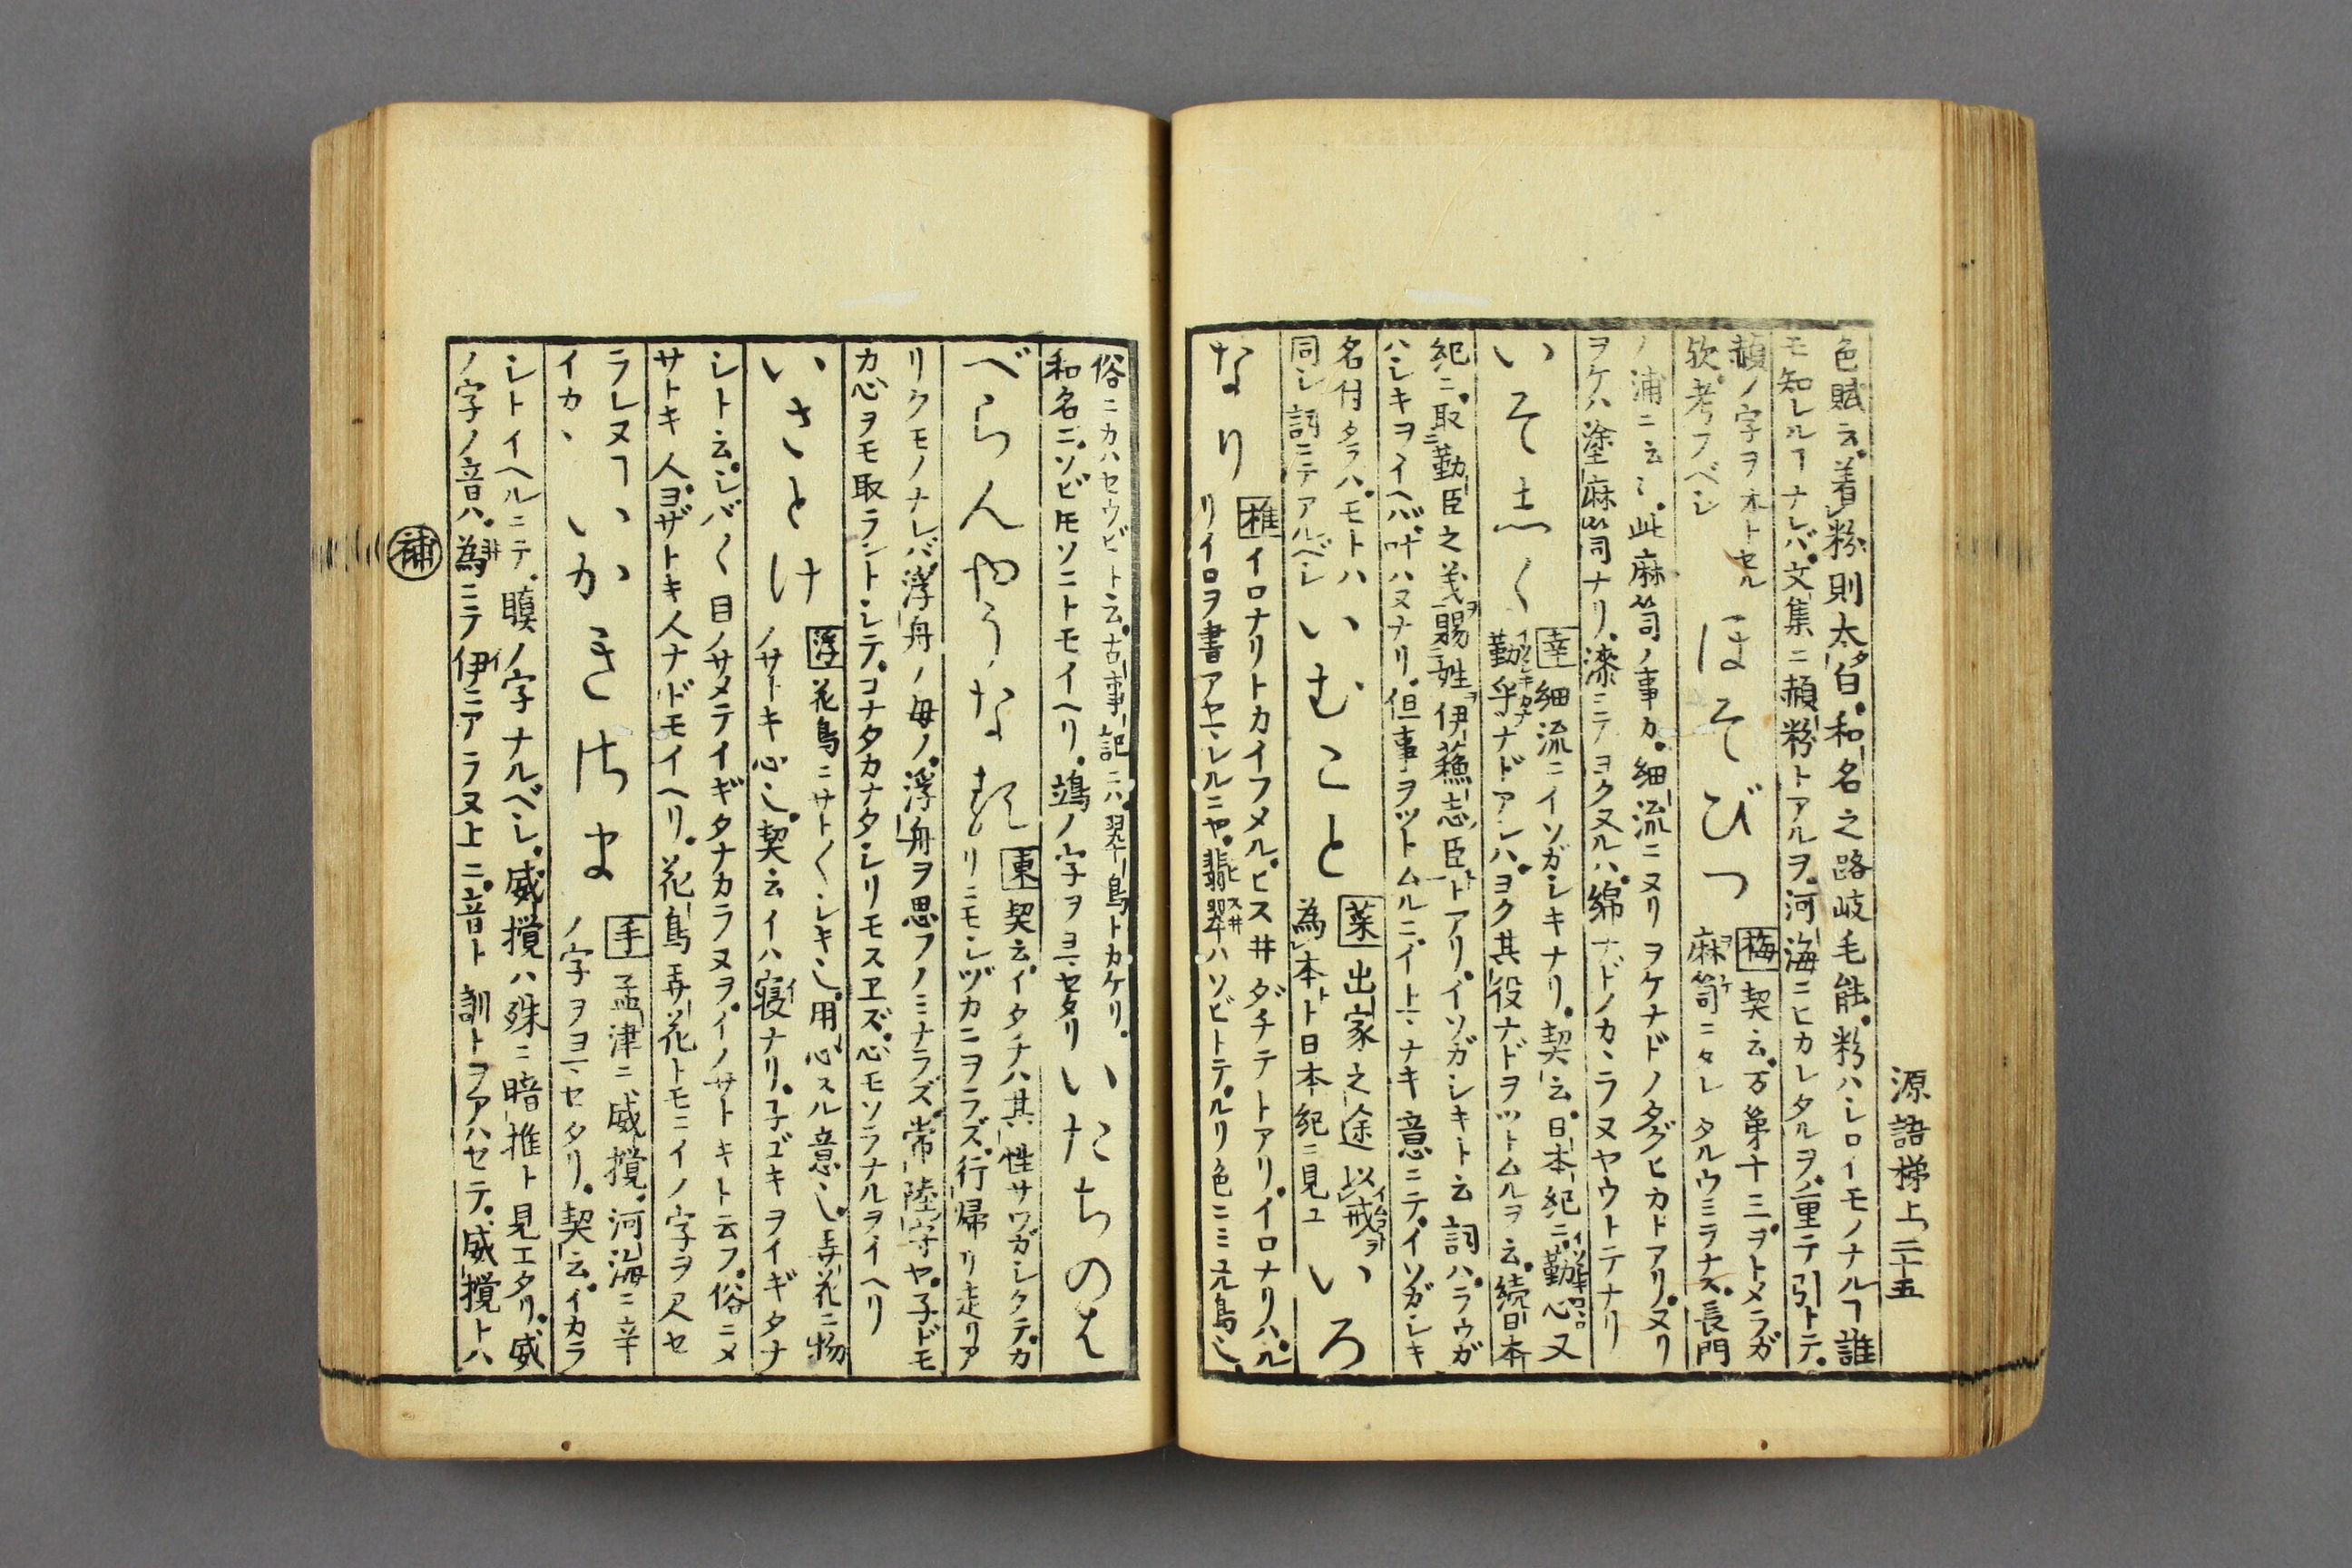 源語梯上 二十五
色賦云。着粉則太白。和名之路岐毛能。粉ハシロイモノナルヿ誰
モ知レルヿナレバ。文集ニ赬粉トアルヲ。河海ニヒカレタルヲ。重テ引トテ。
赬ノ字ヲオトセル
欤。考フベシ
ほそびつ
梅 契云。万第十三。ヲトメラガ
麻笥ニタレタルウミヲナス。長門
ノ浦ニ云々。此麻笥ノ事カ。細流ニヌリヲケナドノタグヒカトアリ。ヌリ
ヲケハ塗麻笥ナリ。漆ニテヨクヌルハ。綿ナドノカヽラヌヤウトテナリ
いそしく
幸 細流ニイソガシキナリ。契云。日本紀ニ勤心又
勤乎ナドアレハ。ヨク其役ナドヲツトムルヲ云。続日本
紀ニ。取勤臣之義賜姓伊蘓志臣トアリ。イソガシキト云詞ハ。ラウガ
ハシキヲイヘバ。叶ハヌナリ。但事ヲツトムルニ。イトマナキ意ニテ。イソガシキ
名付タラハ。モトハ
同シ詞ニテアルベシ
いむこと
菜 出家之途以戒
為本ト日本紀ニ見ユ
いろ
なり
椎 イロナリトカイフメル。ヒスヰダチテトアリ。イロナリハ。ル
リイロヲ書アヤマレルニヤ。翡翠ハソビトテ。ルリ色ニミユル鳥也
俗ニカハセウビト云。古事記ニハ。翠鳥トカケリ。
和名ニ。ソビ𪜈ソニトモイヘリ。鴗ノ字ヲヨマセタリ
いたちのは
べらんやうなる
東 契云。イタチハ其性サワガシクテ。カ
リニモシヅカニヲラズ。行帰リ走リア
リクモノナレバ。浮舟ノ母ノ。浮舟ヲ思フノミナラズ。常陸守ヤ。子ドモ
カ心ヲモ取ラントシテ。コナタカナタシリモスヱズ。心モソラナルヲイヘリ
いさとけ
浮 花鳥ニサト〱シキ也。用心スル意也。弄花ニ物
ノサトキ心也。契云イハ寝ナリ。子ゴキヲイギタナ
シト云。シバ〱目ノサメテイギタナカラヌヲ。イノサトキト云フ。俗ニメ
サトキ人。ヨザトキ人ナドモイヘリ。花鳥弄花トモニイノ字ヲ又セ
ラレヌヿ
イカヽ
いかきさま
手 孟津ニ威攪。河海ニ辛
ノ字ヲヨマセタリ。契云。イカラ
シトイヘルニテ。瞋ノ字ナルベシ。威攪ハ殊ニ暗推ト見エタリ。威
ノ字ノ音ハ。為ニテ伊ニアラヌ上ニ。音ト訓トヲアハセテ。威攪トハ
補